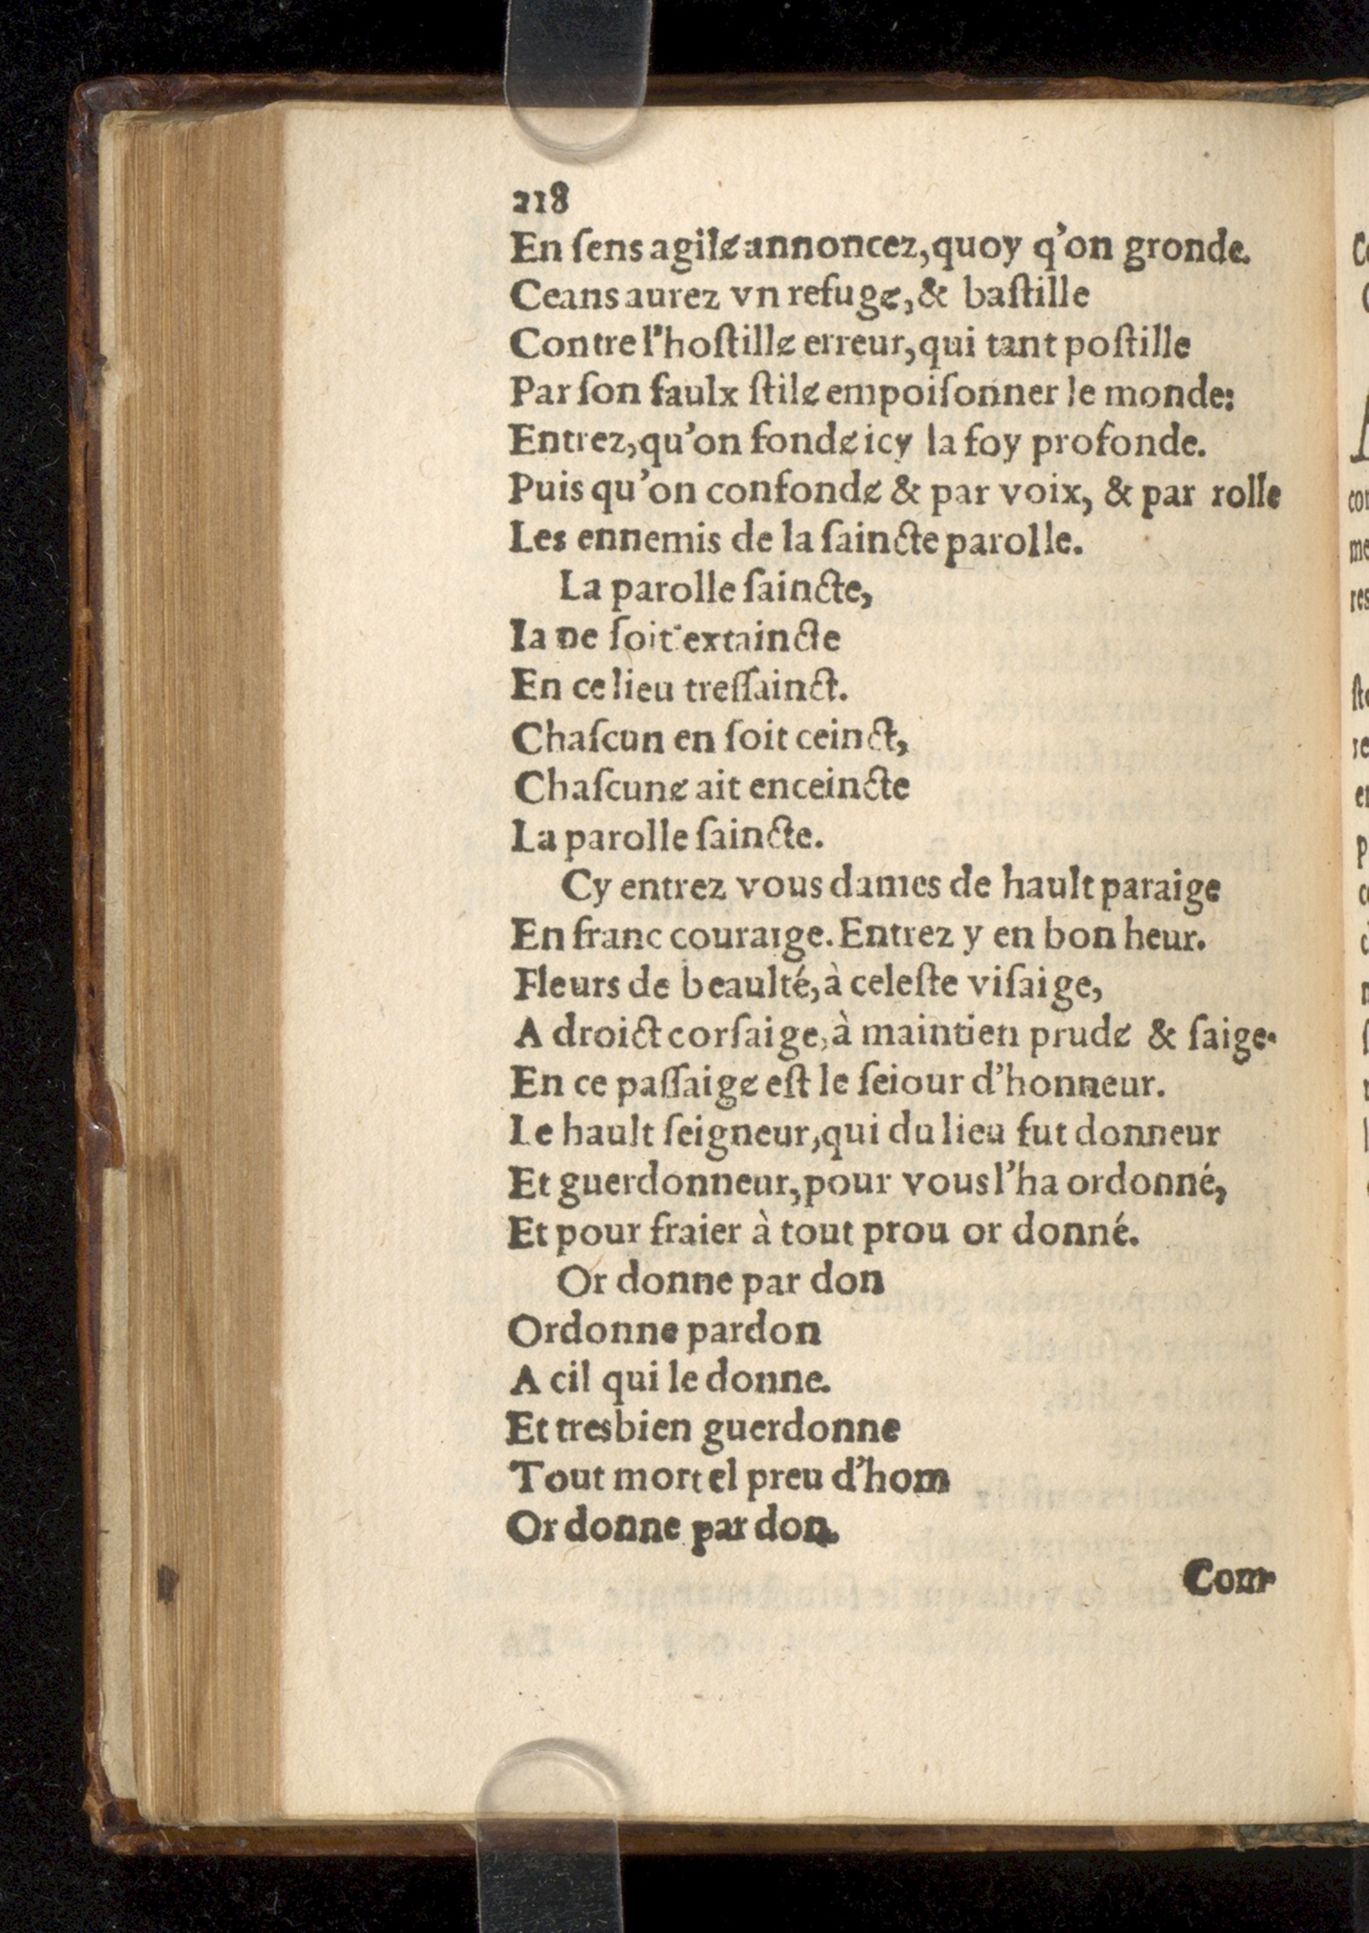 218
En ſens agile annoncez, quoy q'on gronde.
Ceans aurez vn refuge, & baſtille
Contre l'hoſtille erreur, qui tant poſtille
Par ſon faulx ſtile empoiſonner le monde:
Entrez, qu'on fonde icy la foy profonde.
Puis qu'on confonde & par voix, & par rolle
Les ennemis de la ſaincte parolle.
La parolle ſaincte,
Ia ne ſoit extaincte
En ce lieu treſſainct.
Chaſcun en ſoit ceinct,
Chaſcune ait enceincte
La parolle ſaincte.
Cy entrez vous dames de hault paraige
En franc couraige. Entrez y en bon heur.
Fleurs de beaulté, à celeſte viſaige,
A droict corſaige, à maintien prude & ſaige.
En ce paſſaige eſt le ſeiour d'honneur.
Le hault ſeigneur, qui du lieu fut donneur
Et guerdonneur, pour vous l'ha ordonné,
Et pour fraier à tout prou or donné.
Or donne par don
Ordonne pardon
A cil qui le donne.
Et tresbien guerdonne
Tout mortel preu d'hom
Or donne par don.
Com-